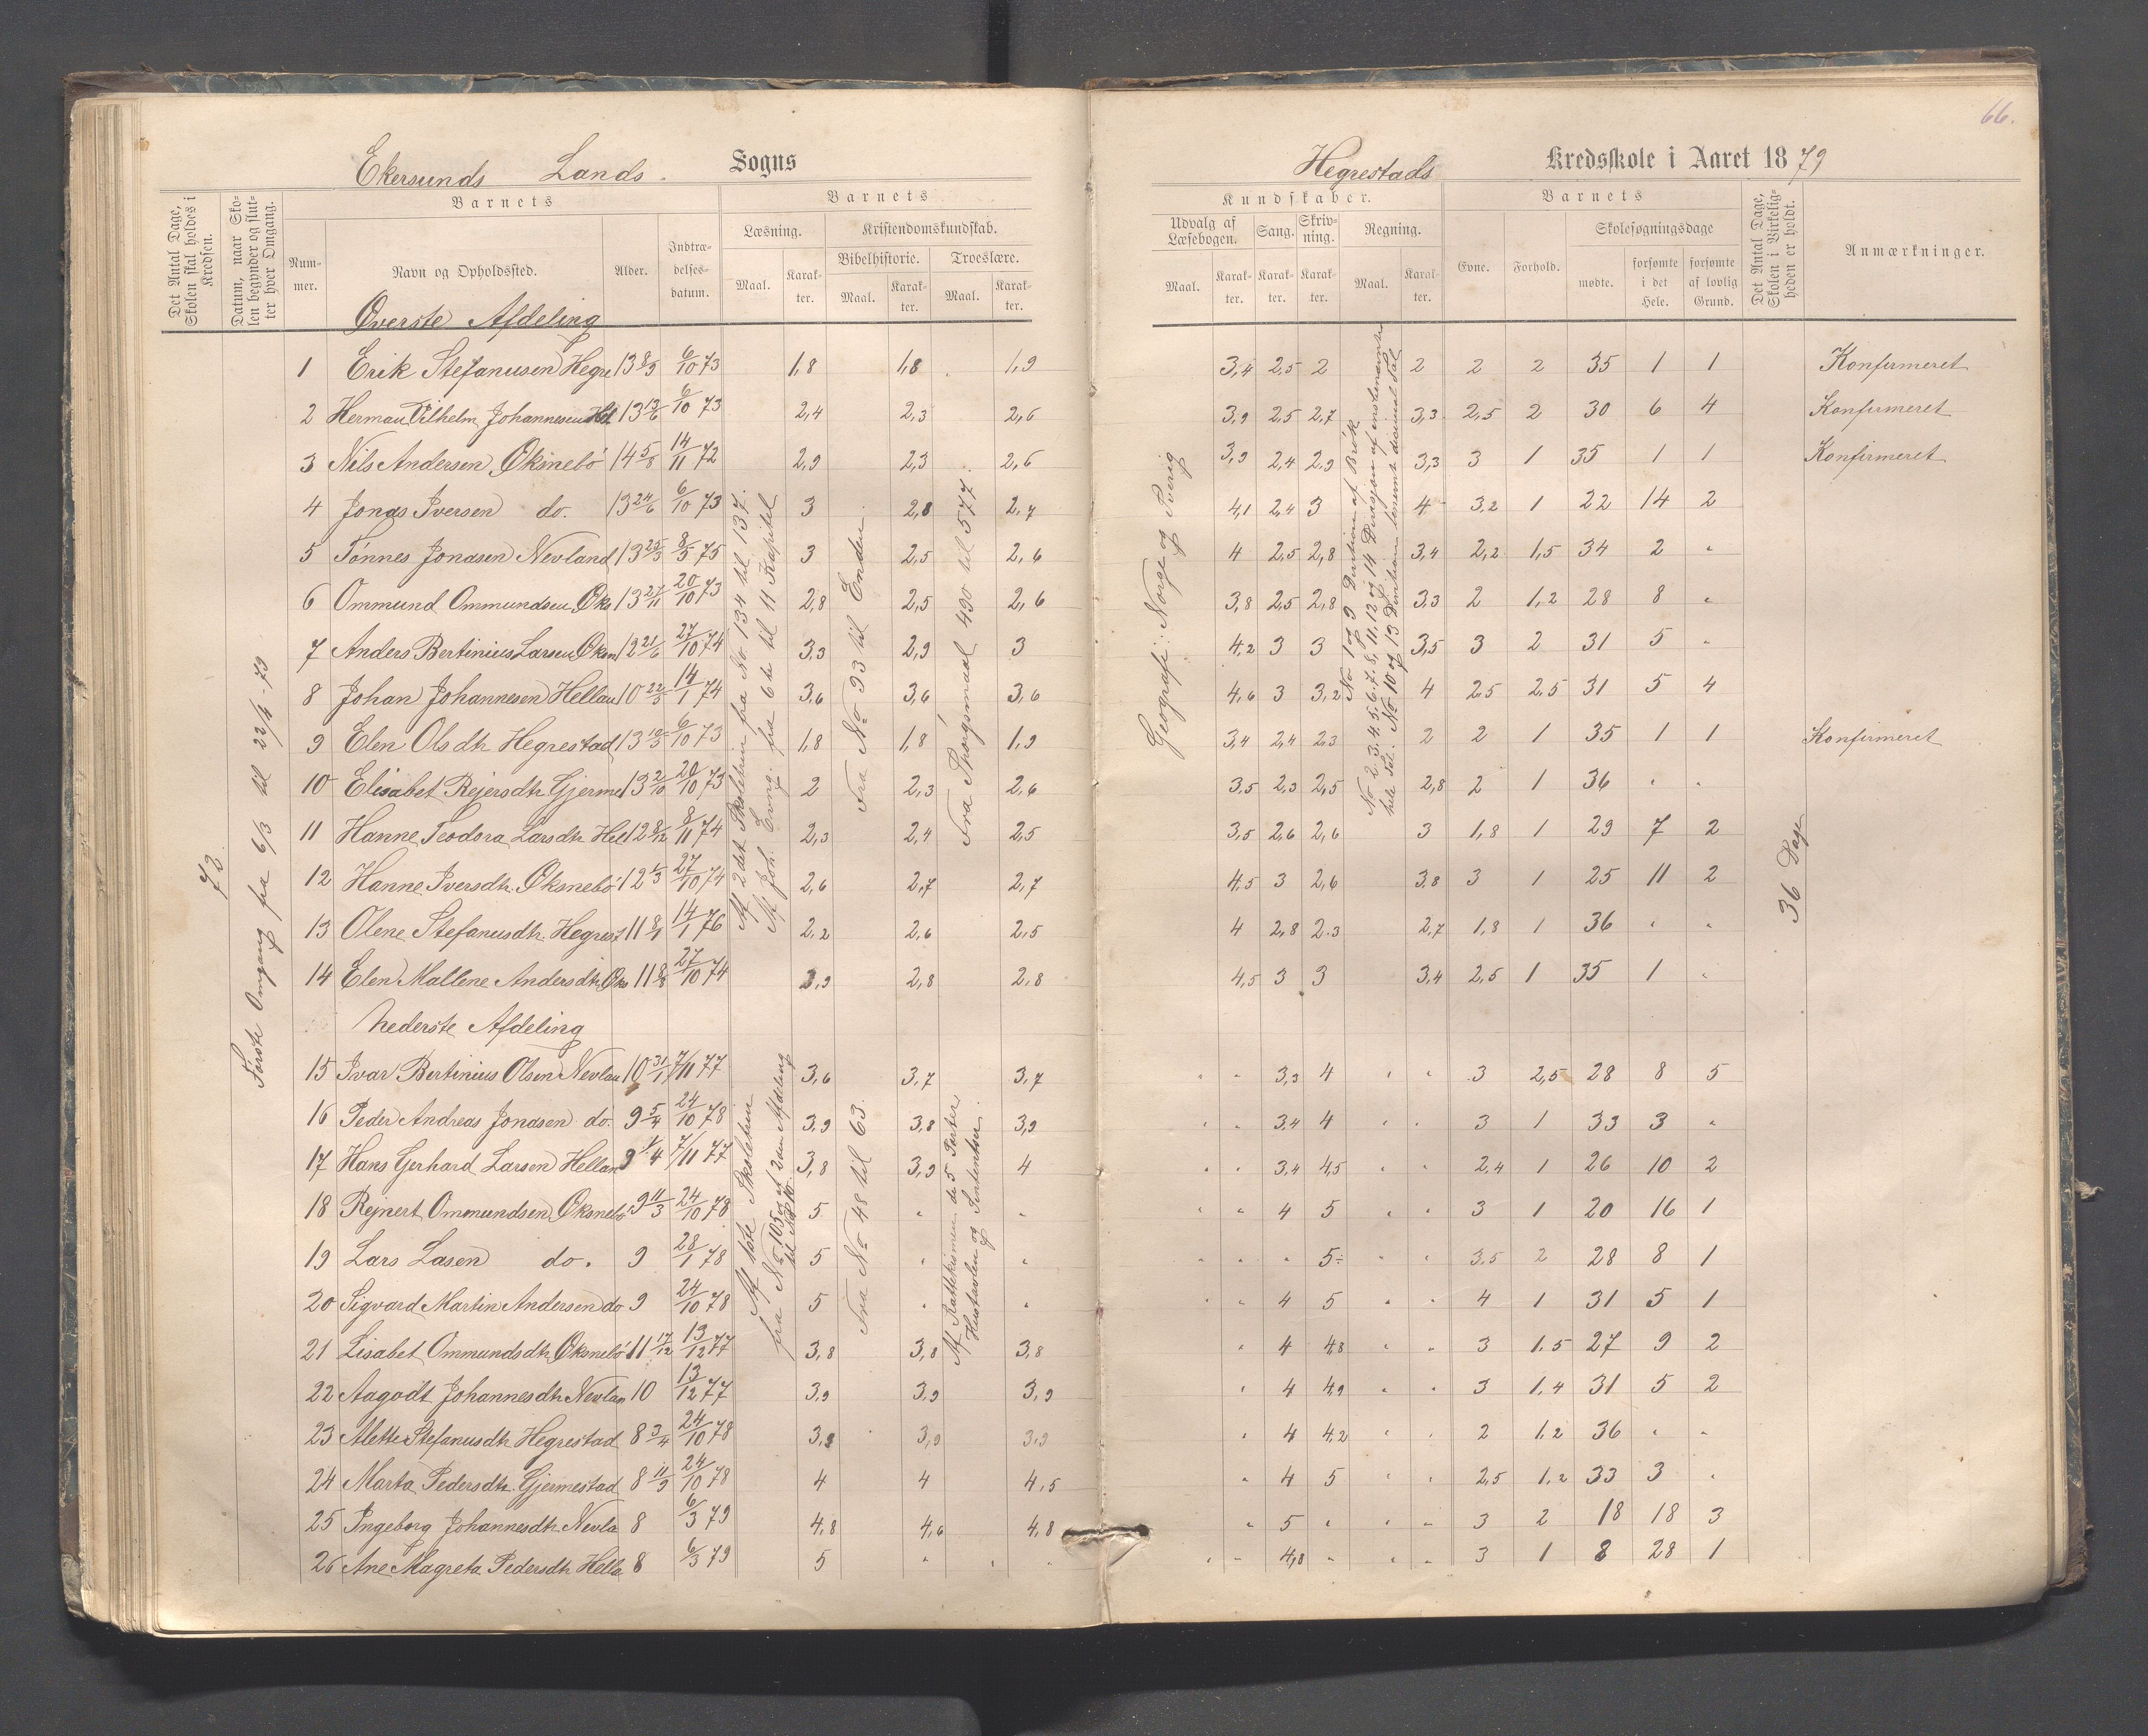 66.
Ekersunds Lands. Sogns Hegrestads Kredsskole i Aaret 1879
Det Antal Dage, Skolen skal holdes i Kredsen.
Datum, naar Skolen begynder og slutter hver Omgang.
Barnets
Nummer. Navn og Opholdssted. Alder. Indtrædelsesdatum.
Barnets
Læsning. Kristendomskundskab.
Bibelhistorie. Troeslære.
Maal. Karakter. Maal. Karakter. Maal. Karakter.
Kundskaber.
Udvalg af Læsebogen. Sang. Skrivning. Regning.
Maal. Karakter. Karakter. Karakter. Maal. Karakter.
Barnets
Evne. Forhold. Skolesøgningsdage
mødte. forsømte i det Hele. forsømte af lovlig Grund.
Det Antal Dage, Skolen i Virkeligheden er holdt.
Anmærkninger.
Øverste Afdeling
1 Erik Stefanusen Hegre 13 8/9 6/10 73 1,8 1,8 1,9 3,4 2,5 2 2 2 2 35 1 1 Konfirmeret
2 Herman Vilhelm Johannesen Hel 13 13/6 6/10 73 2,4 2,3 2,6 3,9 2,5 2,7 3,3 2,5 2 30 6 4 Konfirmeret
3 Nils Andersen Øksnebö 14 5/8 14/11 72 2,9 2,3 2,6 3,9 2,4 2,9 3,3 3 1 35 1 1 Konfirmeret
4 Jonas Iversen do. 13 24/6 6/10 73 3 2,8 2,7 4,1 2,4 3 4 3,2 1 22 14 2
5 Tönnes Jonasen Nevland 13 25/3 8/5 75 3 2,5 2,6 4 2,5 2,8 3,4 2,2 1,5 34 2 "
6 Ommund Ommundsen Øks 13 27/11 20/10 73 2,8 2,5 2,6 3,8 2,5 2,8 3,3 2 1,2 28 8 "
7 Anders Bertinius Larsen Øksn 12 21/6 27/10 74 3,3 2,9 3 4,2 3 3 3,5 3 2 31 5 "
8 Johan Johannesen Hellan 10 22/5 14/1 74 3,6 3,6 3,6 4,6 3 3,2 4 2,5 2,5 31 5 4
9 Elen Olsdtr Hegrestad 13 19/3 6/10 73 1,8 1,8 1,9 3,4 2,4 2,3 2 2 1 35 1 1 Konfirmeret
10 Elisabet Rejersdtr Gjerme 13 2/10 20/10 73 2 2,3 2,6 3,5 2,3 2,5 2,8 2 1 36 " "
11 Hanne Teodora Larsdtr Hel 12 8/12 8/11 74 2,3 2,4 2,5 3,5 2,6 2,6 3 1,8 1 29 7 2
12 Hanne Iversdtr. Øksnebö 12 1/3 27/10 74 2,6 2,7 2,7 4,5 3 2,6 3,8 3 1 25 11 2
13 Olene Stefanusdtr. Hegrest 11 8/1 14/1 76 2,2 2,6 2,5 4 2,8 2,3 2,7 1,8 1 36 " "
14 Elen Mallene Andersdtr Øks 11 8/8 27/10 74 2,9 2,8 2,8 4,5 3 3 3,4 2,5 1 35 1 "
Nederste Afdeling
15 Ivar Bertinius Olsen Nevlan 10 31/1 7/11 77 3,6 3,7 3,7 " " 3,3 4 " " 3 2,5 28 8 5
16 Peder Andreas Jonasen do. 9 5/4 24/10 78 3,9 3,8 3,9 " " 3,4 4 3 1 33 3 "
17 Hans Gerhard Larsen Hellan 9 1/4 7/11 77 3,8 3,9 4 " " 3,4 4,5 " " 2,4 1 26 10 2
18 Rejnert Ommundsen Øksnebö 9 11/3 24/10 78 5 " " " " 4 5 " " 3 1 20 16 1
19 Lars Lasen do. 9 28/1 78 5 " " " " " 5÷ " " 3,5 2 28 8 1
20 Sigvard Martin Andersen do 9 24/10 78 5 " " " " 4 5 " " 4 1 31 5 1
21 Lisabet Ommundsdtr Øksnebö 11 17/12 13/12 77 3,8 3,8 3,8 " 4 4,8 " " 3 1,5 27 9 2
22 Aagodt Johannesdtr Nevlan 10 13/12 77 3,9 3,9 3,9 " 4 4,9 " " 3 1,4 31 5 2
23 Alette Stefanusdtr Hegrestad 8 3/4 24/10 78 3,9 3,9 3,9 " 4 4,2 " " 2 1,2 36 " "
24 Marta Pedersdtr. Gjermestad 8 11/9 24/10 78 4 4 4,5 " 4 5 " " 2,5 1,2 33 3 "
25 Ingeborg Johannesdtr Nevla 8 6/3 79 4,8 4,6 4,8 " 5 " " " 3 2 18 18 3
26 Ane Magreta Pedersdtr Hella 8 6/3 79 5 " " " " 4,8 " " " 3 1 8 28 1
72
Förste Omgang fra 6/3 til 22/4 - 79
Af 2det Skoletrin fra No 134 til 137.
Af Joh. Evng. fra 6te til 11 Kapitel
Fra No 93 til Enden.
Fra Spörgsmaal 490 til 577.
Af 1ste Skoletrin
fra No 105 og af 2den Afdeling
til No 16.
Fra No 48 til 63.
Af Katekismen de 5 Parter
Hustavlen og
Geografi: Norge og Sverig
No 1 og 9 Division af Brök
No 2.3.4.5.6.7.8, 11, 12 og 14
hele Tal. No 10 og 13
36 Dage